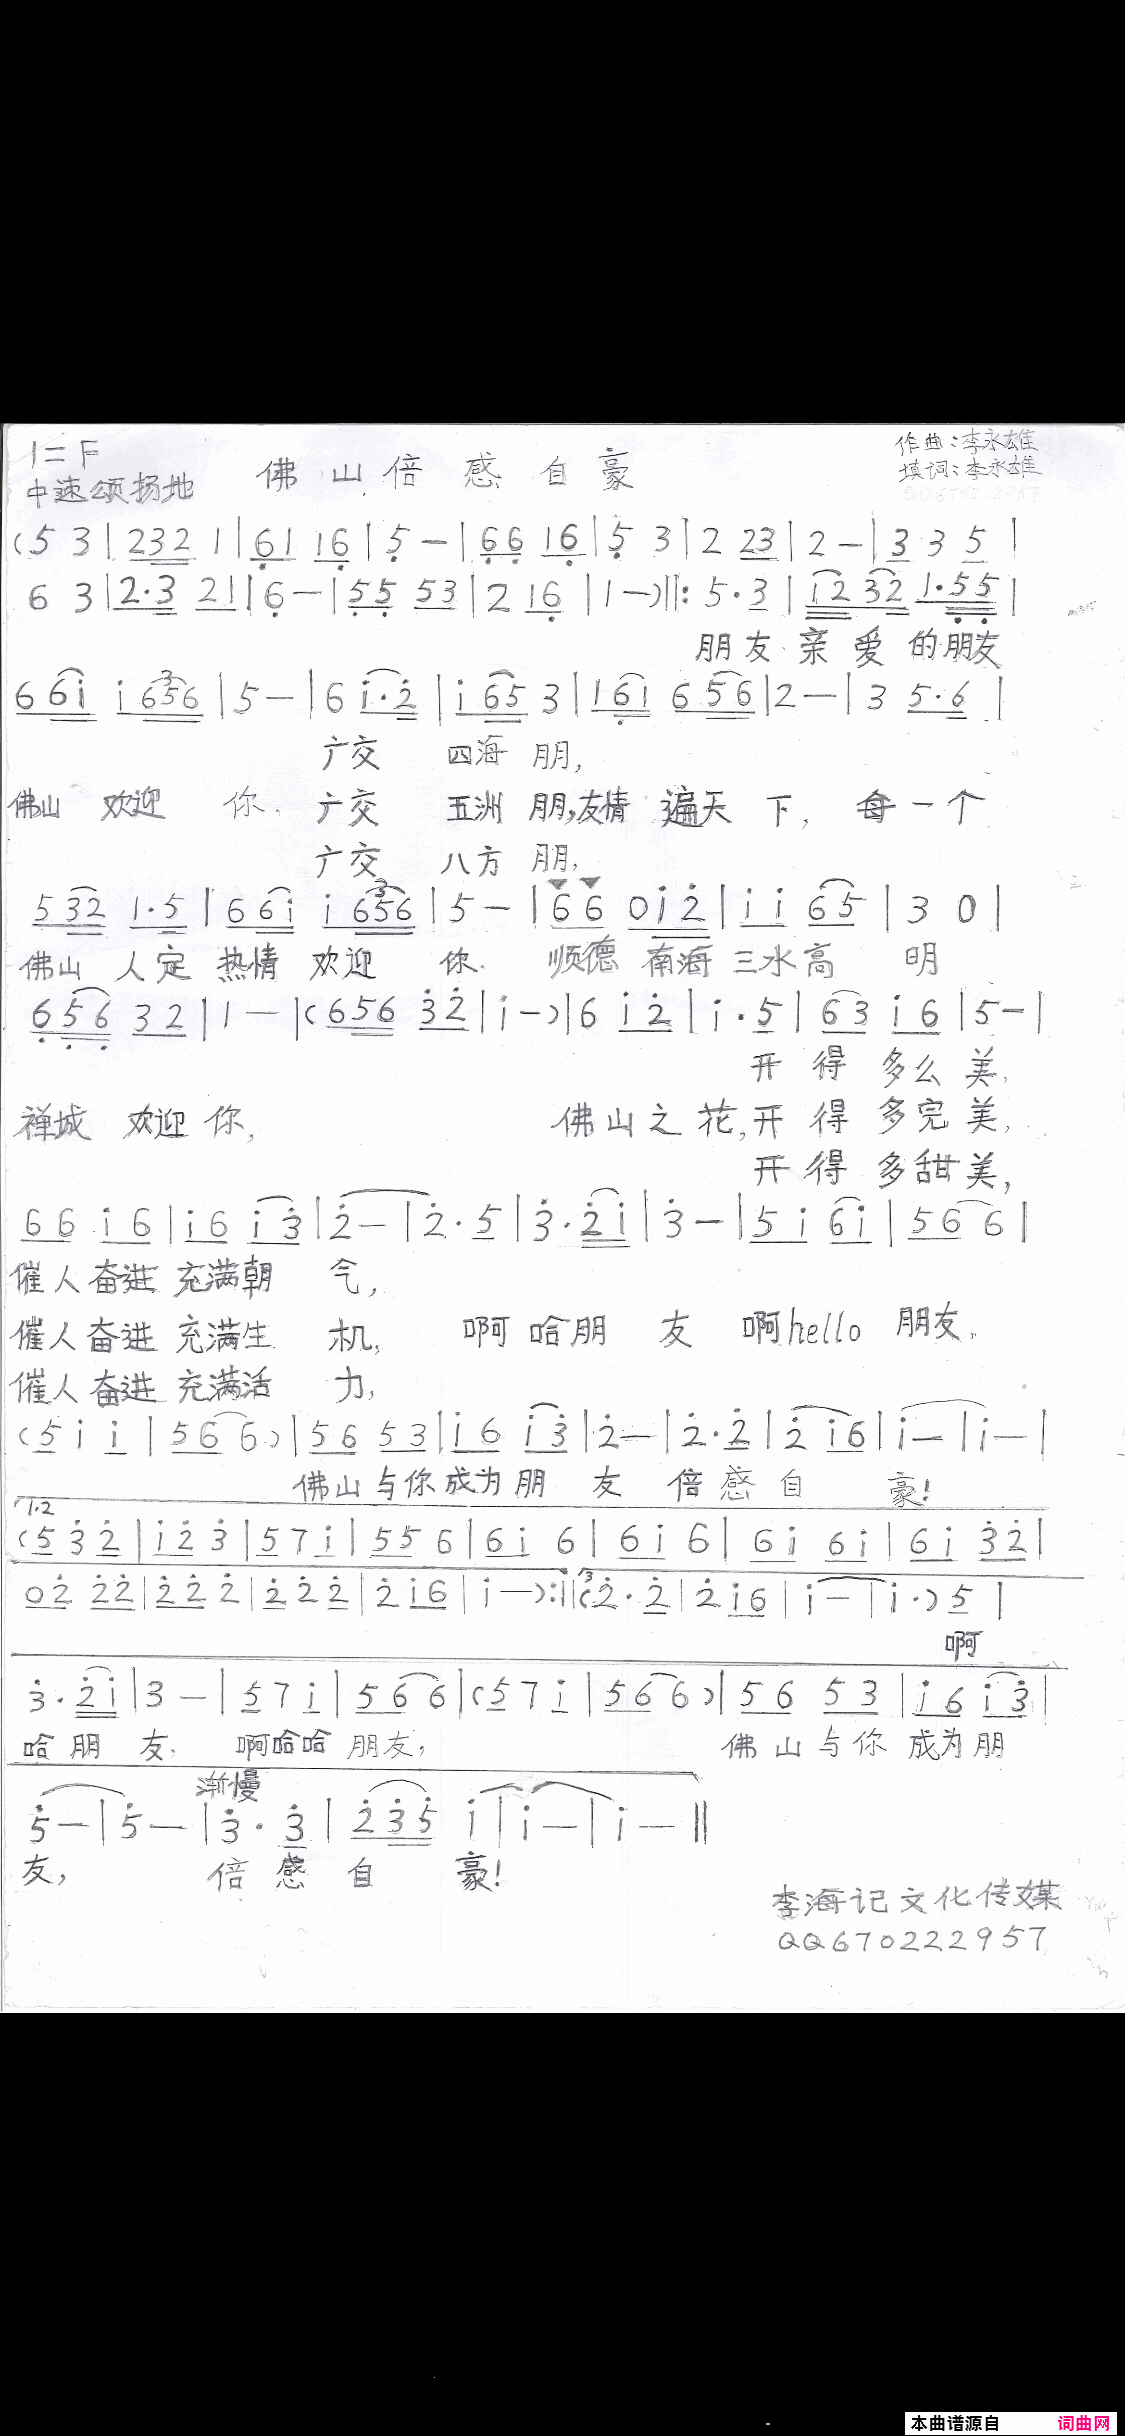 1=F
佛山倍感自豪
作曲:李永雄
中速颂扬地
填词:李永雄
(5 3 | 232 1 | 61 16 | 5 — | 66 16 | 5 3 | 2 23 | 2 — | 3 3 5 |
6 3 | 2·3 21 | 6 — | 55 53 | 2 16 | 1 —) ‖: 5·3 | 12 32 1·55 |
朋友 亲 爱 的朋友
6 6i i 656 | 5 — | 6 i·2 | i 65 3 | 161 6 56 | 2 — | 3 5·6 |
广交 四海 朋,
佛山 欢迎 你. 广交 五洲 朋,友情 遍天 下, 每一个
广交 八方 朋,
5 32 1·5 | 6 6i i 656 | 5 — | 66 0i2 | ii 65 | 3 0 |
佛山 人定 热情 欢迎 你. 顺德 南海 三水高 明
656 32 | 1 — | (656 32 | i —) | 6 i2 | i·5 | 63 i6 | 5 — |
开 得 多么 美,
禅城 欢迎 你, 佛山之花,开 得 多完美,
开 得 多甜美,
66 i6 | i6 i3 | 2 — | 2·5 | 3·2i | 3 — | 5 i 6i | 56 6 |
催人奋进 充满朝 气,
催人奋进 充满生 机, 啊哈朋 友 啊hello 朋友,
催人奋进 充满活 力,
(5 i i | 56 6) | 56 53 | i6 i3 | 2 — | 2·2 | 2 i6 | i — | i — |
佛山与你成为朋 友 倍感自 豪!
1·2
(5 3 2 | i2 3 | 57 i | 55 6 | 6i 6 | 6i 6 | 6i 6i | 6i 32 |
02 22 | 22 2 | 22 2 | 2 i6 | i —) :‖ 3 (2·2 | 2 i6 | i — | i·) 5 |
啊
3·2i | 3 — | 57 i | 56 6 | (57 i | 56 6) | 56 53 | i6 i3 |
哈朋 友, 啊哈哈 朋友, 佛山与你 成为朋
渐慢
5 — | 5 — | 3·3 | 2 35 i | i — | i — ‖
友, 倍感 自 豪!
李海记文化传媒
QQ670222957
本曲谱源自 词曲网